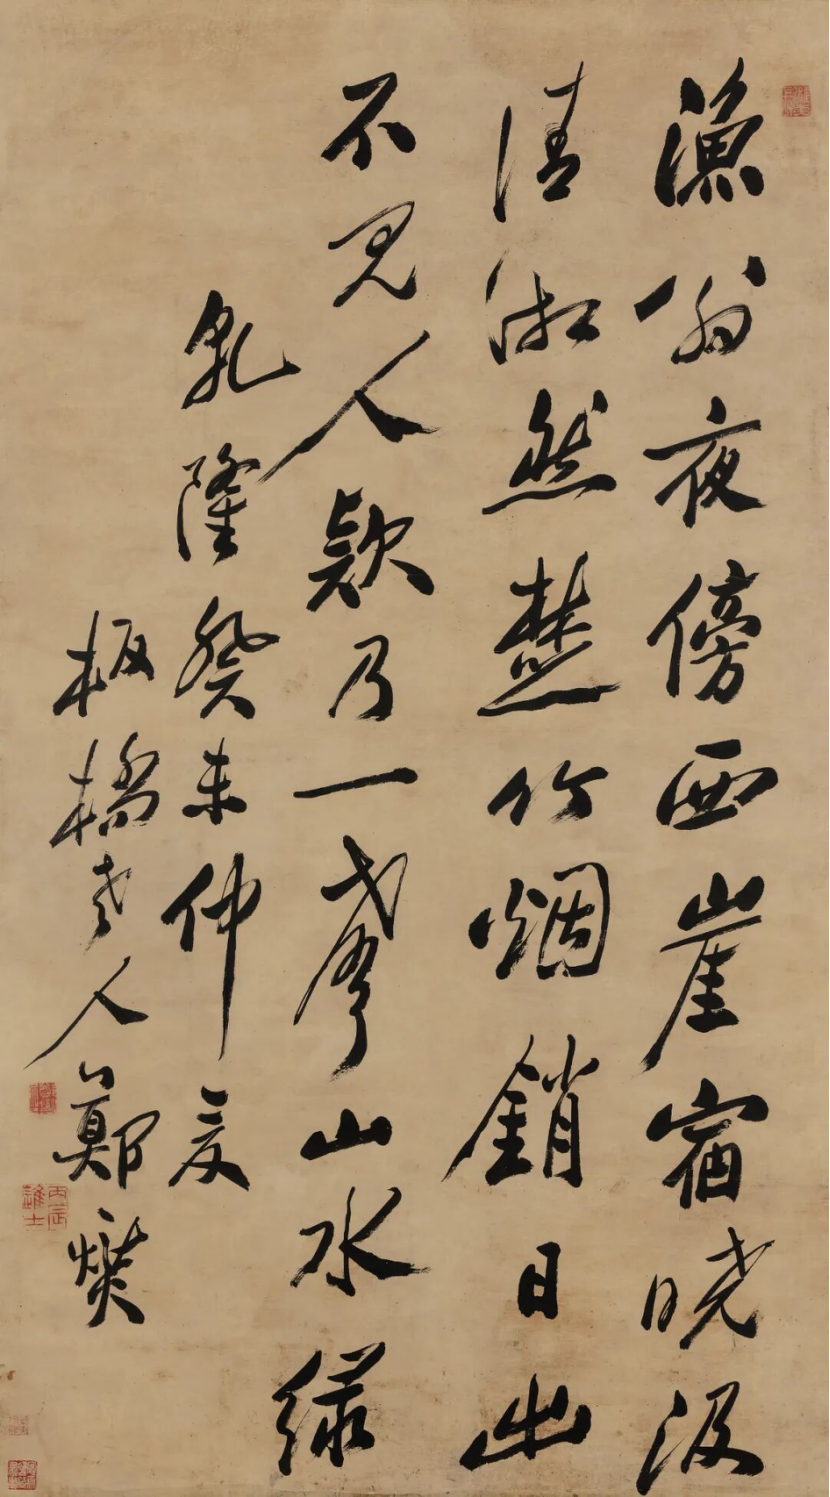 漁翁夜傍西崖宿曉汲
清湘然楚竹烟銷日出
不見人欸乃一聲山水綠
乾隆癸未仲夏
板橋老人鄭燮
丙辰進士